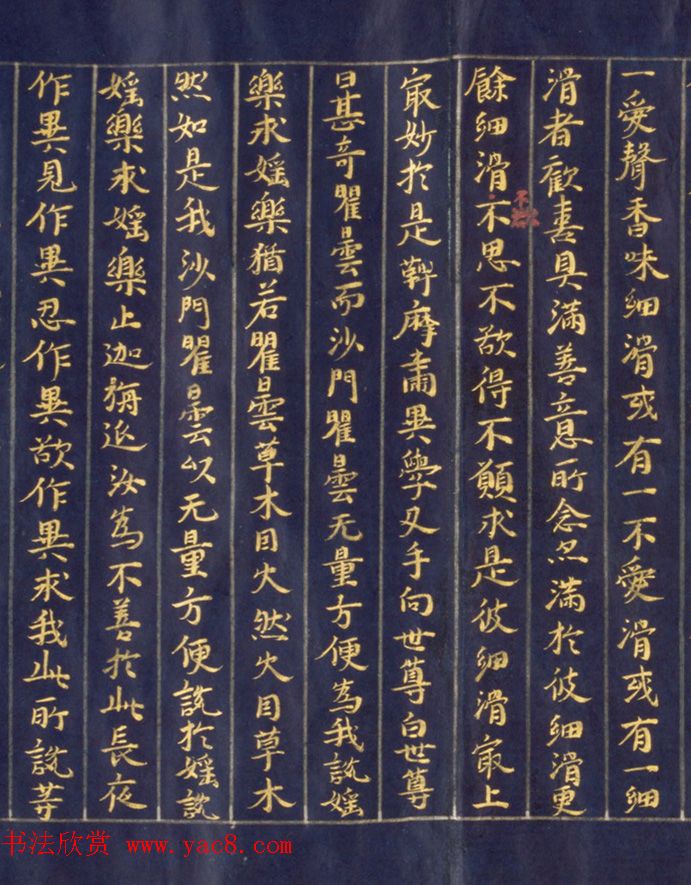 一愛聲香味細滑或有一不愛滑或有一細
滑者歡喜具滿善意所念滿於彼細滑更
餘細滑不思不欲得不願求是彼細滑冣上
冣妙於是鞞摩肅異學叉手向世尊白世尊
曰甚奇瞿曇而沙門瞿曇无量方便為我說婬
樂求婬樂猶若瞿曇草木因火然火因草木
然如是我沙門瞿曇以无量方便說於婬說
婬樂求婬樂止迦旃延汝為不善於此長夜
作異見作異忍作異欲作異求我此所說等
书法欣赏 www.yac8.com